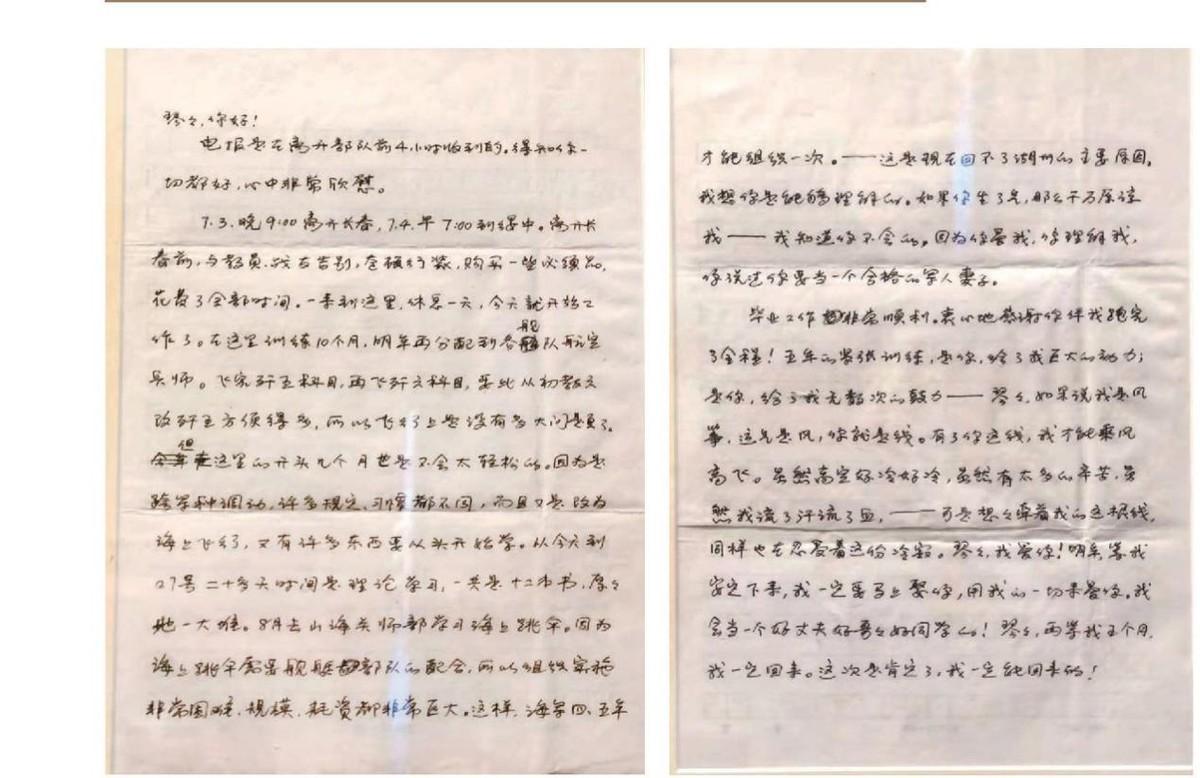 琴々，你好！
电报是在离开部队前4小时收到的。得知你一
切都好，心中非常欣慰。
7.3.晚9:00离开长春，7.4.早7:00到绥中。离开长
春前，与教员、战友告别，仓顿行装，购买一些必须品，
花费了全部时间。一来到这里，休息一天，今天就开始工
作了。在这里训练10个月，明年再分配到各舰队航空
兵师。飞完歼五科目，再飞歼六科目，要比从初教六
改歼五方便得多，所以飞行上是没有多大问题了。
但这里的开头几个月也是不会太轻松的。因为是
跨军种调动，许多规定、习惯都不同，而且又是改为
海上飞行，又有许多东西要从头开始学。从今天到
27号二十多天时间是理论学习，一共是十二本书，厚々
地一大堆。8月去山海关师部学习海上跳伞。因为
海上跳伞需要舰艇部队的配合，所以组织实施
非常困难，规模、耗资都非常巨大。这样，海军四、五年
才能组织一次。——这是现在回不了湖州的主要原因。
我想你是能够理解的。如果你生了气，那么千万原谅
我——我知道你不会的。因为你爱我，你理解我，
你说过你要当一个合格的军人妻子。
毕业工作非常顺利。衷心地感谢你伴我跑完
了全程！五年的紧张训练，是你，给了我巨大的动力；
是你，给了我无数次的鼓力——琴々，如果说我是风
筝，这气是风，你就是线。有了你这线，我才能乘风
高飞。虽然高空好冷好冷，虽然有太多的辛苦，虽
然我流了汗流了血，——可是想々牵着我的这根线，
同样也在忍受着这份冷寂。琴々，我爱你！明年等我
安定下来，我一定要马上娶你，用我的一切来爱你。我
会当一个好丈夫好哥々好同学的！琴々，再等我五个月，
我一定回来。这次是肯定了，我一定能回来的！